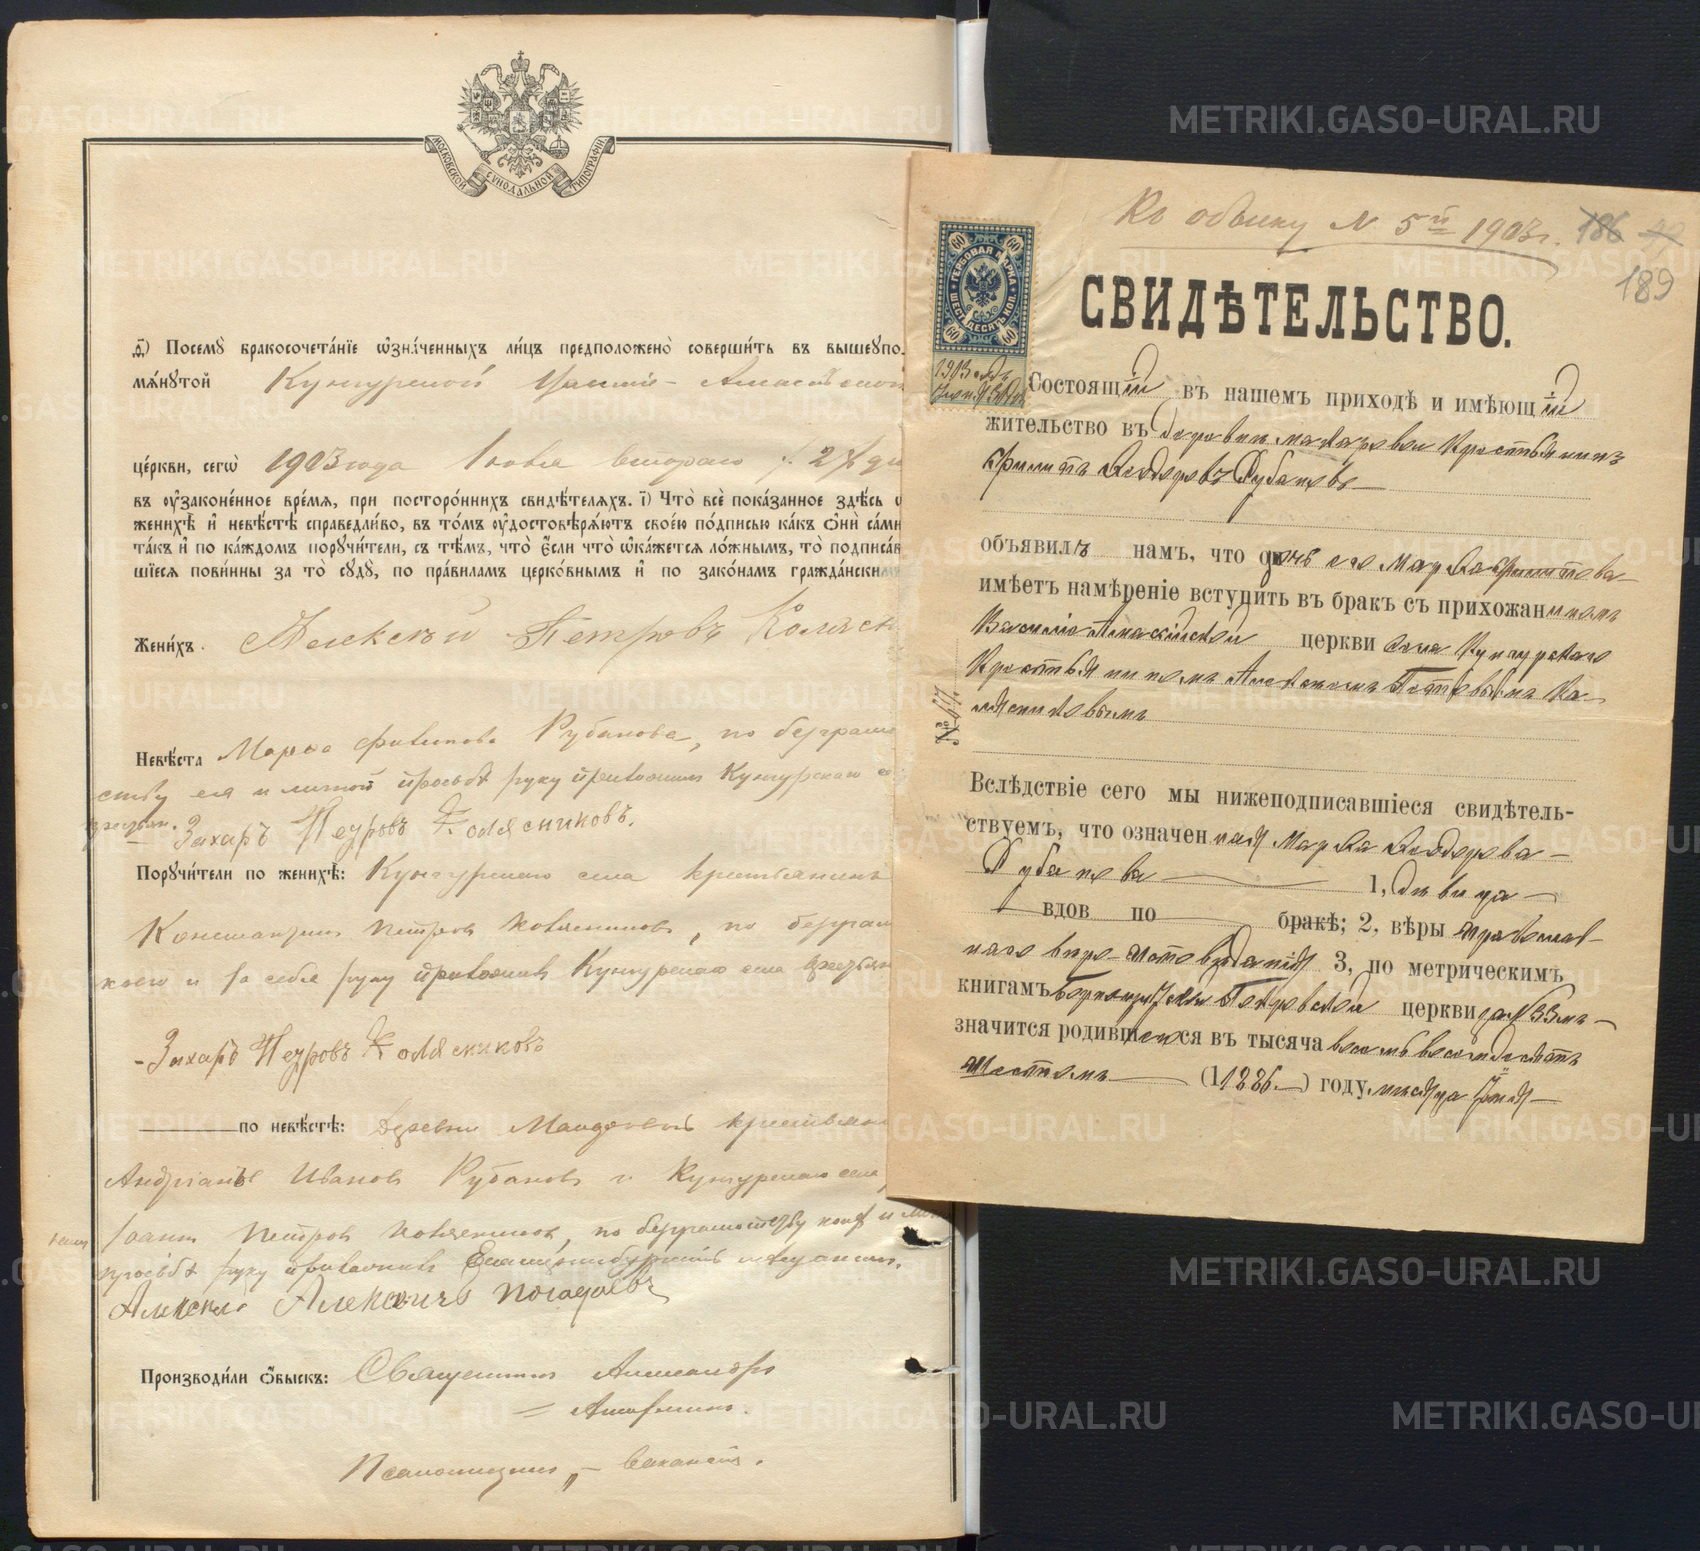 МОСКОВСКОЙ СѴНОДАЛЬНОЙ ТИПОГРАФІИ
ѳ҃) Посемꙋ бракосочета́нїе ѡзна́ченныхъ ли́цъ предположено̀ соверши́ть въ вышеꙋпо
мѧ́нꙋтой Кунгурской
це́ркви, сегѡ̀ 1903 года Іюня втораго / 2 / дня
въ оу҆зако́ненное вре́мѧ, при посторо́ннихъ свидѣ́телѧхъ. і҃) Что̀ всѐ пока́занное здѣ́сь
женихѣ̀ и҆ невѣ́стѣ справедли́во, въ то́мъ оу҆достовѣрѧ́ютъ свое́ю по́дписью ка́къ ѻ҆нѝ са́ми
та́къ и҆ по ка́ждомъ порꙋчи́тели, съ тѣ́мъ, что̀ є҆́сли что̀ ѡка́жетсѧ ло́жнымъ, то̀ подписа́в
шїесѧ пови́нны за то̀ сꙋдꙋ̀, по пра́виламъ церко́внымъ и҆ по зако́намъ гражда́нскимъ
Жени́хъ. Алексѣй Петровъ Колясн
Невѣ́ста Марѳа Филипова Рубанова, по безграмот
ству ея и личной просьбѣ руку приложилъ Кунгурскаго
крестьян. Захаръ Петровъ Колясниковъ.
Порꙋчи́тели по женихѣ̀: Кунгурскаго села крестьянинъ
Константинъ Петровъ Колясниковъ, по безграмот
и за себя руку приложилъ Кунгурскаго села крестьян
Захаръ Петровъ Колясниковъ
по невѣ́стѣ: Деревни крестьянинъ
Андріанъ Ивановъ Рубановъ и Кунгурскаго села
Іоаннъ Петровъ Колясниковъ, по безграмотству коихъ и
просьбѣ руку приложилъ Екатеринбургскій мѣщанинъ
Алексѣй Алексѣичъ Погадаевъ
Производи́ли ѻ҆́быскъ: Священникъ Александръ
Псаломщикъ „ – вакансія.
Къ обыску № 5й 1903 г. 186
189
60 60
ГЕРБОВАЯ МАРКА
ШЕСТЬДЕСЯТЪ КОП.
60 60
СВИДѢТЕЛЬСТВО.
Состоящій въ нашемъ приходѣ и имѣющій
жительство въ деревнѣ Макаровой крестьянинъ
Филиппъ Ѳедоровъ Рубановъ
объявилъ намъ, что дочь его Марѳа Филиппова
имѣетъ намѣреніе вступить въ бракъ съ прихожаниномъ
церкви села Кунгурскаго
крестьяниномъ Алексѣемъ Петровымъ Ко-
лясниковымъ
№ 67.
Вслѣдствіе сего мы нижеподписавшіеся свидѣтель-
ствуемъ, что означенная Марѳа Ѳедорова
Рубанова 1, дѣвица
вдов по бракѣ; 2, вѣры православ-
наго вѣро-исповѣданія 3, по метрическимъ
книгамъ Покровской церкви за № 33мъ
значится родившеюся въ тысяча восемь восемьдесятъ
шестомъ (11886.) году, мѣсяца Іюля